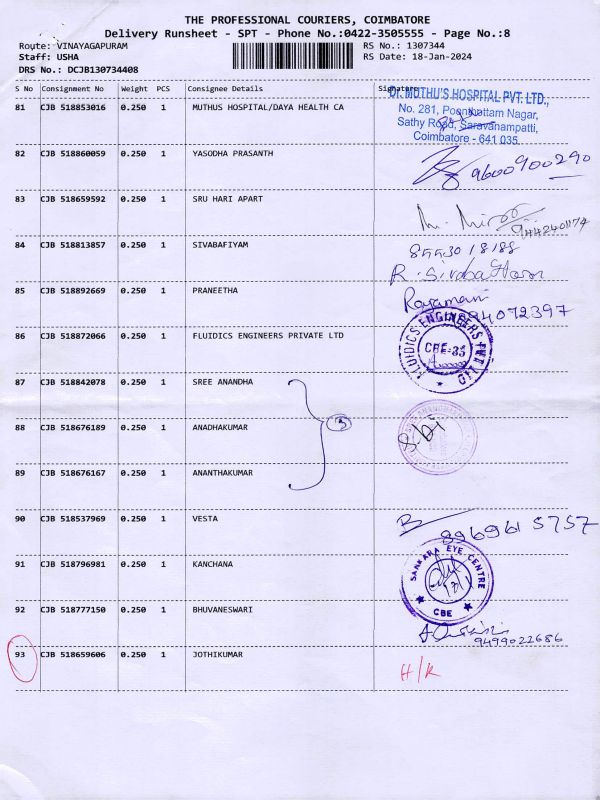 THE PROFESSIONAL COURIERS, COIMBATORE
Delivery Runsheet - SPT - Phone No.:0422-3505555 - Page No.:8
Route: VINAYAGAPURAM RS No.: 1307344
Staff: USHA RS Date: 18-Jan-2024
DRS No.: DCJB130734408
S No Consignment No Weight PCS Consignee Details Signature
Dr. MUTHU'S HOSPITAL PVT. LTD.,
81 CJB 518853016 0.250 1 MUTHUS HOSPITAL/DAYA HEALTH CA No. 281, Poonthottam Nagar,
Sathy Road, Saravanampatti,
Coimbatore - 641 035.
82 CJB 518860059 0.250 1 YASODHA PRASANTH 9600900290
83 CJB 518659592 0.250 1 SRU HARI APART
84 CJB 518813857 0.250 1 SIVABAFIYAM 8553018188
85 CJB 518892669 0.250 1 PRANEETHA Rajamani
86 CJB 518872066 0.250 1 FLUIDICS ENGINEERS PRIVATE LTD FLUIDICS ENGINEERS PVT LTD
CBE-35
87 CJB 518842078 0.250 1 SREE ANANDHA
88 CJB 518676189 0.250 1 ANADHAKUMAR 3
89 CJB 518676167 0.250 1 ANANTHAKUMAR
90 CJB 518537969 0.250 1 VESTA 8969615757
91 CJB 518796981 0.250 1 KANCHANA SANKARA EYE CENTRE
CBE
92 CJB 518777150 0.250 1 BHUVANESWARI 9499022686
93 CJB 518659606 0.250 1 JOTHIKUMAR H/K